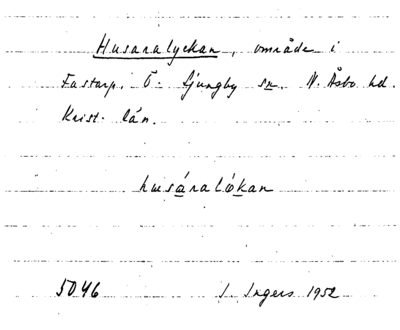 Husaralyckan, område i
Fastarp, Ö. Ljungby sn. N. Åsbo hd.
Krist. län.
husáralókan
5046 I. Ingers 1952